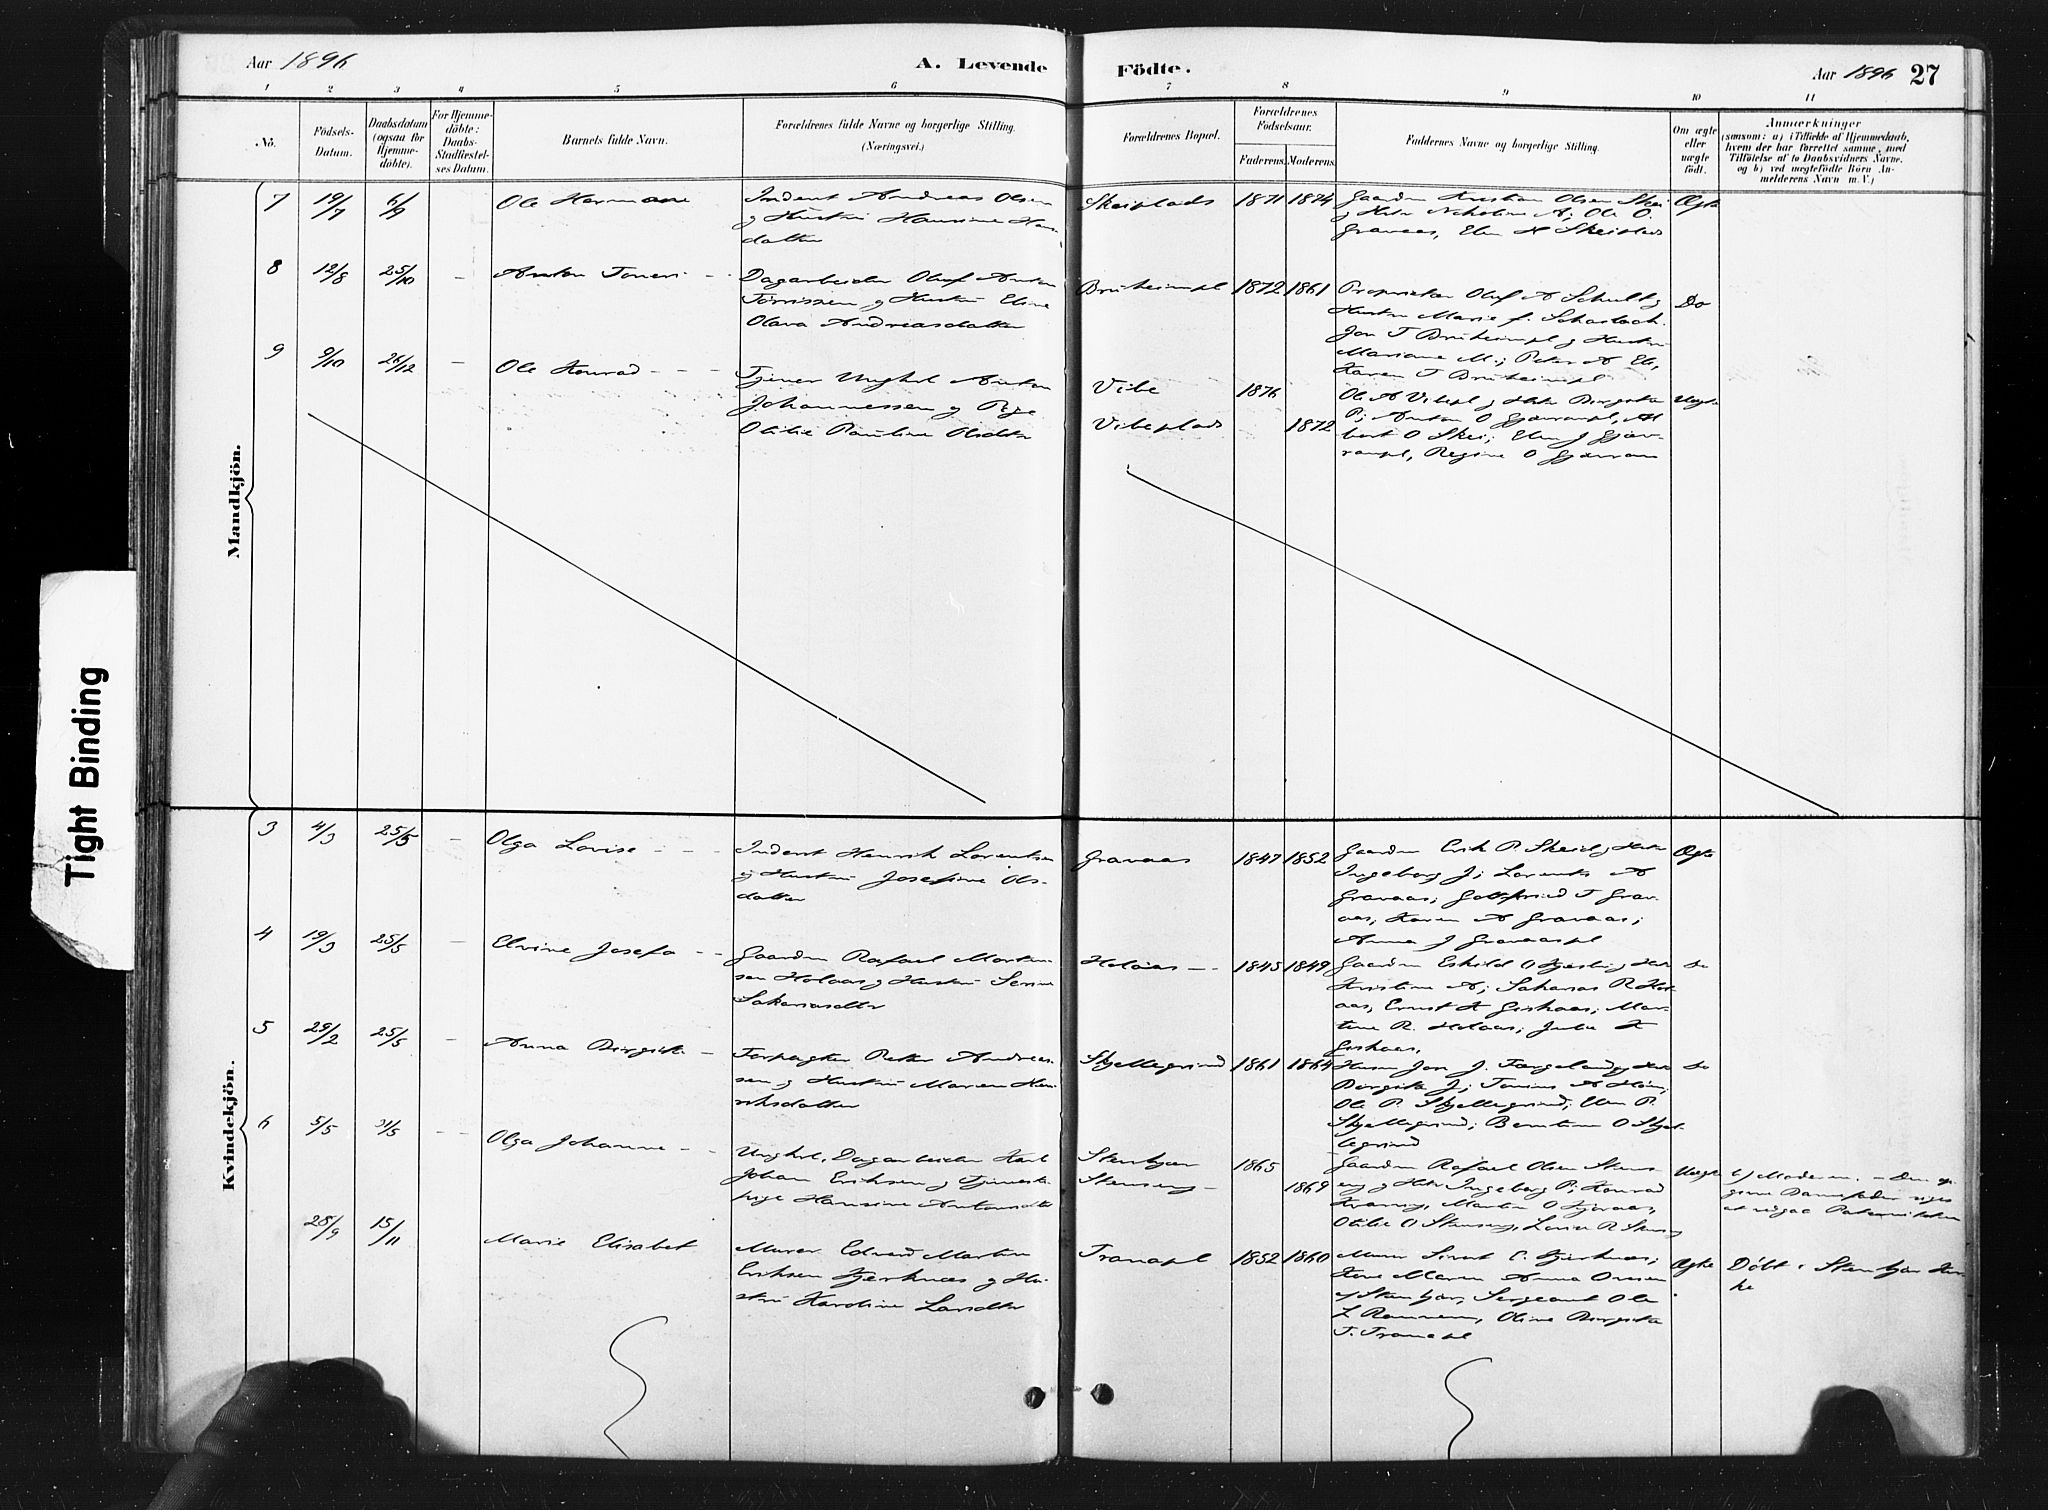 Aar 1896
A. Levende
Födte.
Aar 1896 27
1 2 3 4 5 6 7 8 9 10 11
No.
Födsels-
Datum.
Daabsdatum
(ogsaa for
Hjemme-
döbte).
For Hjemme-
döbte:
Daabs-
Stadfæstel-
ses Datum.
Barnets fulde Navn.
Forældrenes fulde Navne og borgerlige Stilling.
(Næringsvei.)
Forældrenes Bopæl.
Forældrenes
Födselsaar.
Faderens. Moderens.
Faddernes Navne og borgerlige Stilling.
Om ægte
eller
uægte
födt.
Anmærkninger
(saasom: a) i Tilfælde af Hjemmedaab,
hvem der har forrettet samme, med
Tilföielse af to Daabsvidners Navne,
og b) ved uægtefödte Börn An-
melderens Navn m. V.)
Mandkjön.
7 19/7 6/9
Ole Hermann
Inderst Andreas Olsen
og Hustru Hansine Han-
datter
Skeiplads 1871 1874
Gaardm Kristian Olsen Skei
Gravaas, Elen H Skeiplads
Ægte
8 12/8 25/10 -
Anton
Dagarbeider Oluf Anton
Tørrissen og Hustru Eline
Olava Andreasdatter
Brüheimpl 1872 1861
Proprietær Oluf A Schult og
Hustru Marie f.
Jon T Brüheimpl og Hustru
Mariane M.; Peter A Eli,
Karen T Brüheimpl
Do
9 9/10 26/12 -
Ole Konrad
Tjener Ungkl Anton
Johannessen og Pige
Otilie Pauline Olsdtr
Vibe 1876
Vibeplads 1872
Ole A Vibepl og Hstr Birgitta
P; Anton O Gjævranpl, Al
bert O Skei; Elen J Gjæv-
ranpl, Regine O Gjævran
Uægte
Kvindekjön.
3 4/3 25/5 -
Olga Lovise
Inderst Henrik Lorentsen
og Hustru Josefine Ols-
datter
Gravaas 1847 1852
Gaardm Erik P. Skei og Hstr
Ingeborg J; Lorents A
Gravaas; Gottfried T Grav-
aas; Karen A Gravaas;
Anna J Gravaaspl
Ægte
4 19/3 25/5 -
Elvine Josefa
Gaardm Rafael Morten
sen Holaas og Hustru Serine
Sakariasdtr
Holaas 1845 1849
Gaardm Eskild O
Kristine A; Sakarias R Hol-
aas, Ernst K Gishaas; Mar-
tine R. Holaas; Julie K
Gishaas,
Do
5 29/2 25/5 -
Anna Birgitta
Forpagter Peter Andreas-
sen og Hustru Maren Hen
riksdatter
Skjellegrind 1861 1864
Husm Jon J. Færgeland og Hstr
Birgitta J; Tonius A
Ole P. Skjellegrind; Elen P.
Skjellegrind; Berntine O Skjel-
legrind
Do
6 5/5 31/5 -
Olga Johanne
Ungkl. Dagarbeider Karl
Johan Eriksen og Tjeneste
pige Hansine Antonsdtr
Stenkjær 1865
Stenseng 1869
Gaardm Rafael Olsen Stens
eng og Hstr Ingeborg P; Konrad
Otilie O Stenseng, Lovise R Stenseng
Uægte
b) Moderen. - Den op-
givne Barnefader siges
at vedgaa Paterniteten
28/9 15/11
Marie Elisabet
Murer Edvard Martin
Eriksen Kjerknæs og Hu-
stru Karoline Larsdtr
Tranapl 1852 1860
Murer Sivert C. Kjerknæs;
Kone Maren Anna Ovesen
af Stenkjær, Sergeant Ole
L Rannem, Oline Birgitta
T. Tranapl
Ægte
Døbt i Stenkjær Kir-
ke
Tight Binding